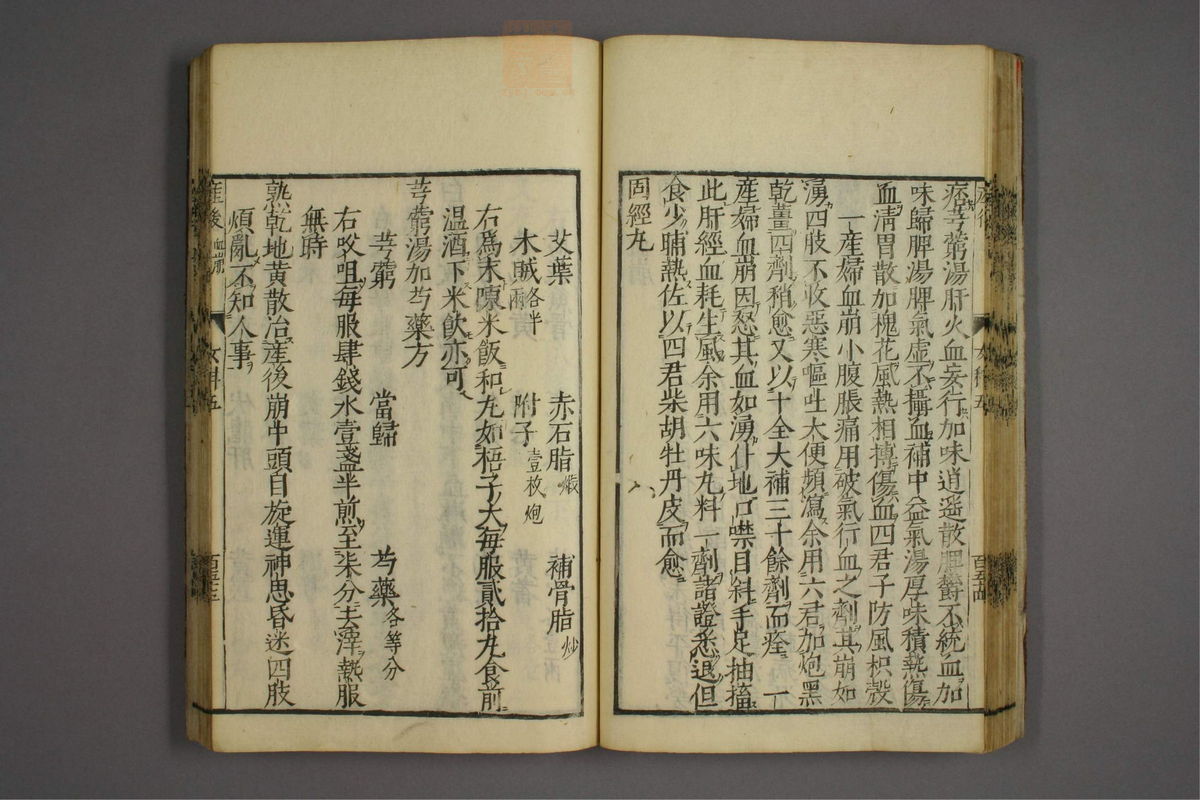 痞芎藭湯肝火血妄行加味逍遥散脾欝不統血加
味歸脾湯脾氣虛不攝血補中益氣湯厚味積熱傷
血清胃散加槐花風熱相搏傷血四君子防風枳殼
一産婦血崩小腹脹痛用破氣行血之劑其崩如
湧四肢不收惡寒嘔吐大便頻瀉余用六君加炮黑
乾薑四劑稍愈又以十全大補三十餘劑而痊 一
産婦血崩因怒其血如湧仆地口噤目斜手足抽搐
此肝經血耗生風余用六味丸料一劑諸證悉退但
食少晡熱佐以四君柴胡牡丹皮而愈
固經丸
艾葉 赤石脂煅 補骨脂炒
木賊各半兩 附子壹枚炮
右爲末陳米飯和丸如梧子大每服貳拾丸食前
温酒下米飲亦可
芎藭湯加芍藥方
芎藭 當歸 芍藥各等分
右㕮咀每服肆錢水壹盞半煎至柒分去滓熱服
無時
熟乾地黄散治産後崩中頭目旋運神思昏迷四肢
煩亂不知人事
産後 血崩 女科五